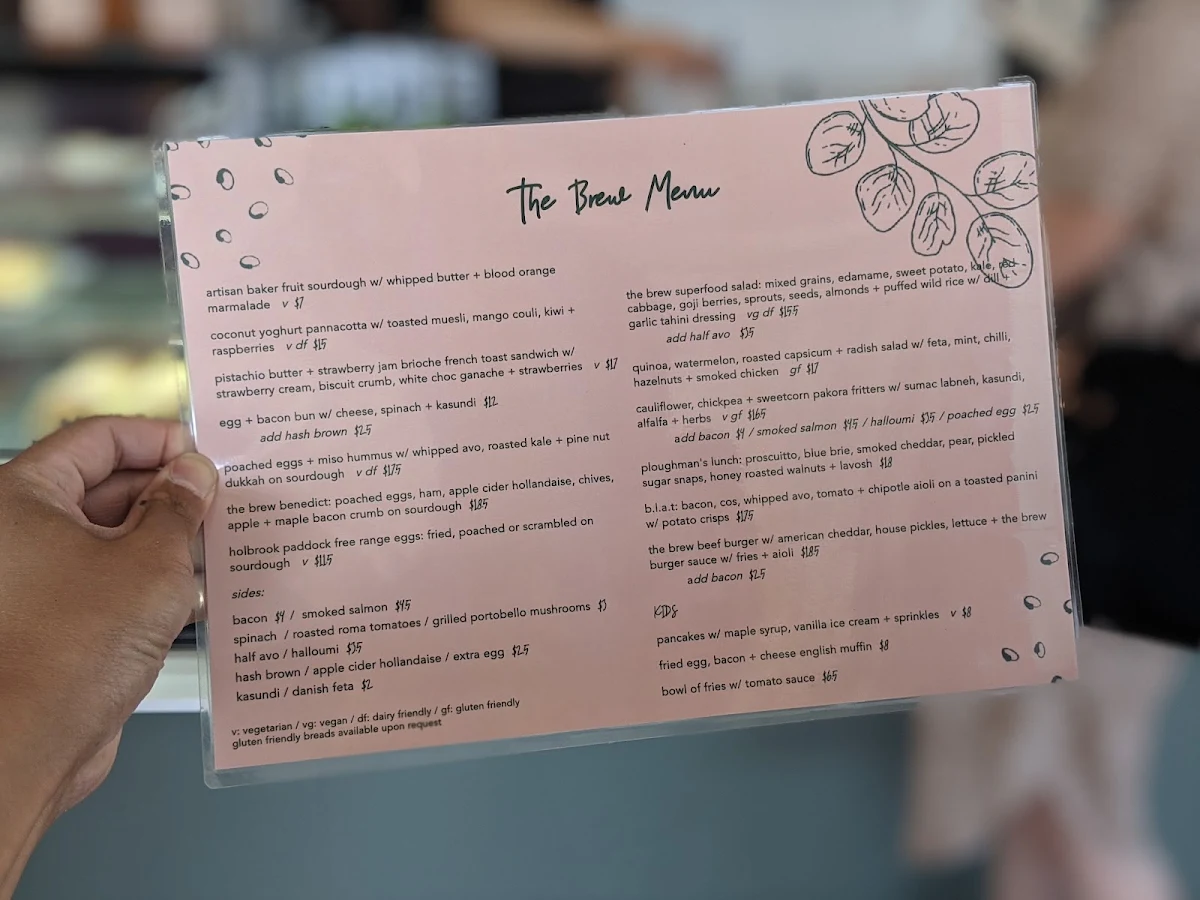 The Brew Menu
artisan baker fruit sourdough w/ whipped butter + blood orange
marmalade v $7
coconut yoghurt pannacotta w/ toasted muesli, mango couli, kiwi +
raspberries v df $15
pistachio butter + strawberry jam brioche french toast sandwich w/
strawberry cream, biscuit crumb, white choc ganache + strawberries v $17
egg + bacon bun w/ cheese, spinach + kasundi $12
add hash brown $25
poached eggs + miso hummus w/ whipped avo, roasted kale + pine nut
dukkah on sourdough v df $175
the brew benedict: poached eggs, ham, apple cider hollandaise, chives,
apple + maple bacon crumb on sourdough $185
holbrook paddock free range eggs: fried, poached or scrambled on
sourdough v $115
sides:
bacon $4 / smoked salmon $45
spinach / roasted roma tomatoes / grilled portobello mushrooms $3
half avo / halloumi $35
hash brown / apple cider hollandaise / extra egg $25
kasundi / danish feta $2
v: vegetarian / vg: vegan / df: dairy friendly / gf: gluten friendly
gluten friendly breads available upon request
the brew superfood salad: mixed grains, edamame, sweet potato, kale, red
cabbage, goji berries, sprouts, seeds, almonds + puffed wild rice w/ dill +
garlic tahini dressing vg df $155
add half avo $35
quinoa, watermelon, roasted capsicum + radish salad w/ feta, mint, chilli,
hazelnuts + smoked chicken gf $17
cauliflower, chickpea + sweetcorn pakora fritters w/ sumac labneh, kasundi,
alfalfa + herbs v gf $165
add bacon $4 / smoked salmon $45 / halloumi $35 / poached egg $25
ploughman's lunch: proscuitto, blue brie, smoked cheddar, pear, pickled
sugar snaps, honey roasted walnuts + lavosh $18
b.l.a.t: bacon, cos, whipped avo, tomato + chipotle aioli on a toasted panini
w/ potato crisps $175
the brew beef burger w/ american cheddar, house pickles, lettuce + the brew
burger sauce w/ fries + aioli $185
add bacon $25
KIDS
pancakes w/ maple syrup, vanilla ice cream + sprinkles v $8
fried egg, bacon + cheese english muffin $8
bowl of fries w/ tomato sauce $65